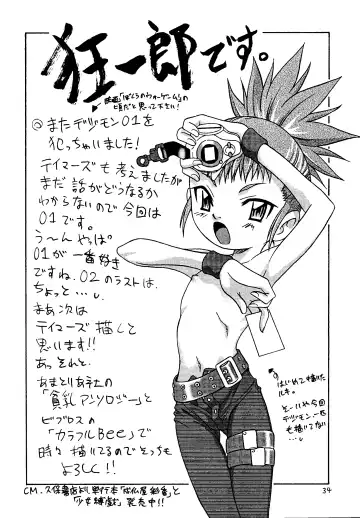 狂一郎です。
映画「ぼくらのウォーゲーム」の
頃だと思って下さい!
またデジモン01を
犯っちゃいました!
テイマーズも考えましたが
まだ話がどうなるか
わからないので今回は
01です。
う〜んやっぱ
01が一番好き
ですね。02のラストは、
ちょっと…。
まぁ次は
テイマーズ描くと
思います!!
あっそれと、
あまとりあ社の
「貧乳アンソロジー」と
ビブロスの
「カラフルBee」で
時々描いてるのでそっちも
よろしく!!
はじめて描いた
ルキ。
とーいや今回
デジモン一匹
も描いてない
CM.久保書店より単行本
発売中!!
34